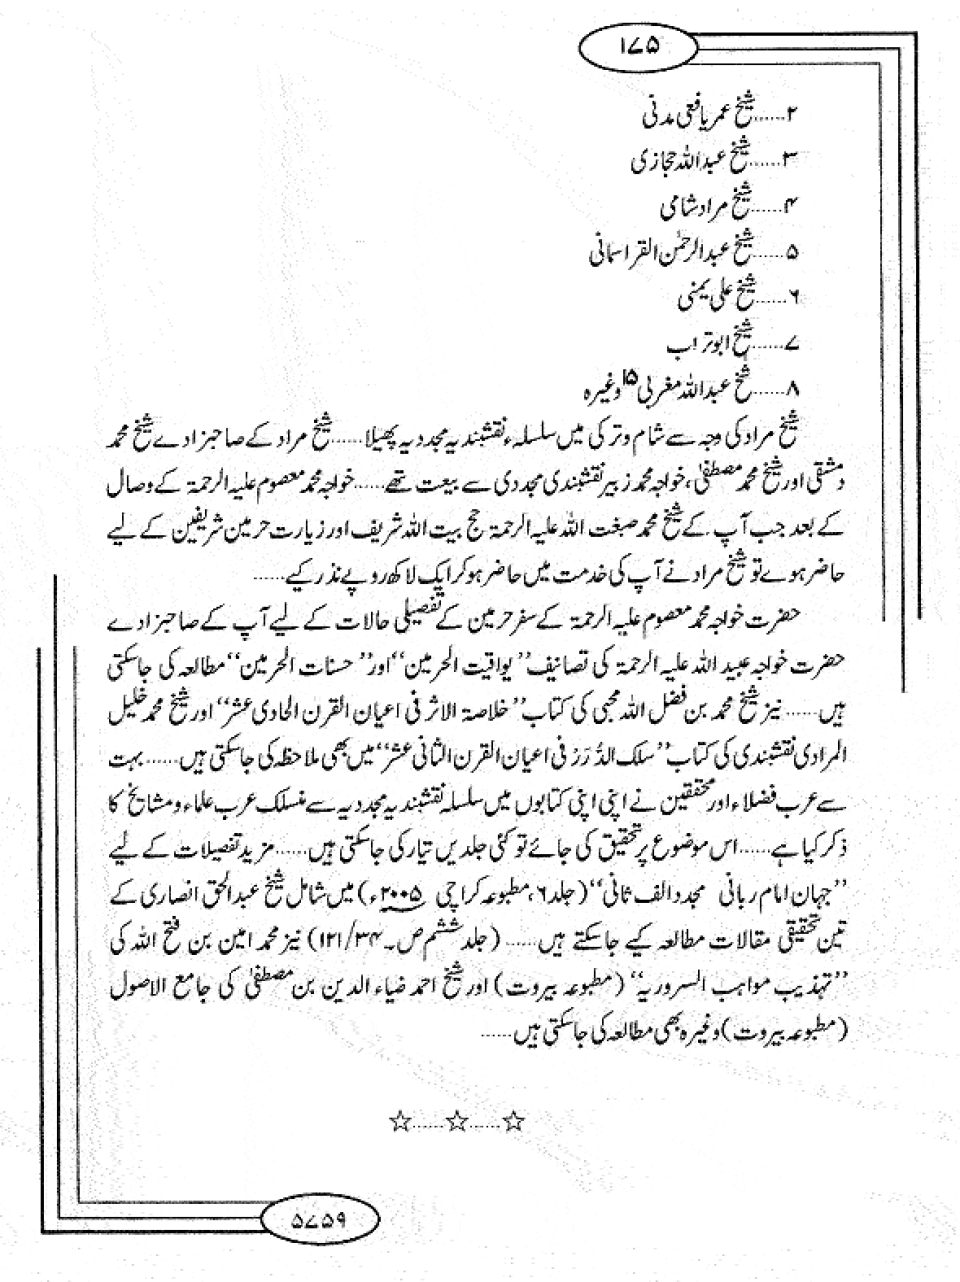 ۱۷۵
۲......شیخ عمر یافعی مدنی
۳......شیخ عبداللہ حجازی
۴......شیخ مراد شامی
۵......شیخ عبدالرحمٰن القراسمانی
۶......شیخ علی یمنی
۷......شیخ ابوتراب
۸......شیخ عبداللہ مغربی۱۵ وغیرہ
شیخ مراد کی وجہ سے شام و ترکی میں سلسلہء نقشبندیہ مجددیہ پھیلا......شیخ مراد کے صاحبزادے شیخ محمد
دمشقی اور شیخ محمد مصطفیٰ، خواجہ محمد زبیر نقشبندی مجددی سے بیعت تھے......خواجہ محمد معصوم علیہ الرحمۃ کے وصال
کے بعد جب آپ کے شیخ محمد صبغت اللہ علیہ الرحمۃ حج بیت اللہ شریف اور زیارت حرمین شریفین کے لیے
حاضر ہوے تو شیخ مراد نے آپ کی خدمت میں حاضر ہو کر ایک لاکھ روپے نذر کیے......
حضرت خواجہ محمد معصوم علیہ الرحمۃ کے سفر حرمین کے تفصیلی حالات کے لیے آپ کے صاحبزادے
حضرت خواجہ عبید اللہ علیہ الرحمۃ کی تصانیف ”یواقیت الحرمین“ اور ”حسنات الحرمین“ مطالعہ کی جاسکتی
ہیں......نیز شیخ محمد بن فضل اللہ محبی کی کتاب ”خلاصۃ الاثر فی اعیان القرن الحادی عشر“ اور شیخ محمد خلیل
المرادی نقشبندی کی کتاب ”سلک الدُّرَر فی اعیان القرن الثانی عشر“ میں بھی ملاحظہ کی جاسکتی ہیں......بہت
سے عرب فضلاء اور محققین نے اپنی اپنی کتابوں میں سلسلہ نقشبندیہ مجددیہ سے منسلک عرب علماء و مشایخ کا
ذکر کیا ہے......اس موضوع پر تحقیق کی جائے تو کئی جلدیں تیار کی جاسکتی ہیں......مزید تفصیلات کے لیے
”جہان امام ربانی مجدد الف ثانی“ (جلد ۶، مطبوعہ کراچی ۲۰۰۵ء) میں شامل شیخ عبدالحق انصاری کے
تین تحقیقی مقالات مطالعہ کیے جاسکتے ہیں......(جلد ششم ص۔۳۴/۱۲۱) نیز محمد امین بن فتح اللہ کی
”تہذیب مواہب السروریہ“ (مطبوعہ بیروت) اور شیخ احمد ضیاء الدین بن مصطفیٰ کی جامع الاصول
(مطبوعہ بیروت) وغیرہ بھی مطالعہ کی جاسکتی ہیں......
☆......☆......☆
۵۷۵۹